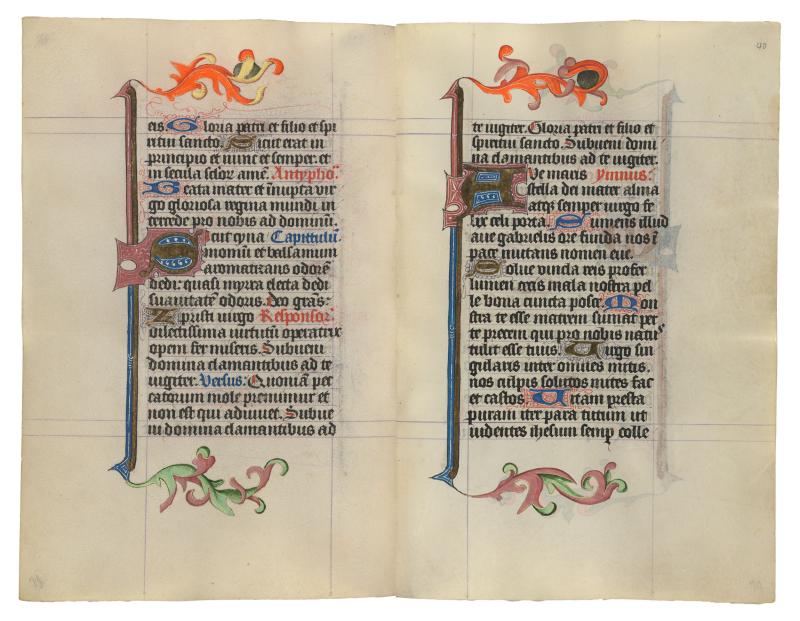 eis. Gloria patri et filio et spi
ritui sancto. Sicut erat in
principio et nunc et semper et
in secula seclor amē. Antypho
Beata mater et īnupta vir
go gloriosa regina mundi in
tercede pro nobis ad dominū.
Sicut cyna Capittulū.
momū et balsamum
aromatizans odorē
dedi: quasi myrra electa dedi
suavitatē odoris. Deo grās:
Xpristi virgo Responsor
dilectissima virtutū operatrix
opem fer miseris. Subueni
domina clamantibus ad te
iugiter. Versus: Quoniā pec
catorum mole premimur et
non est qui adiuuet. Subue
ni domina clamantibus ad
40
te iugiter. Gloria patri et filio et
spiritui sancto. Subueni domi
na clamantibus ad te iugiter.
Ave maris Ymnus:
stella dei mater alma
atqz semper uirgo fe
lix celi porta. Sumens illud
aue gabrielis ore funda nos ī
pace mutans nomen eue.
Solue vincla reis profer
lumen cecis mala nostra pel
le bona cuncta posce. Mon
stra te esse matrem sumat per
te precem qui pro nobis natus
tulit esse tuus. Uirgo sin
gularis inter omnes mitis.
nos culpis solutos mites fac
et castos. Uitam presta
puram iter para tutum ut
uidentes ihesum semp colle